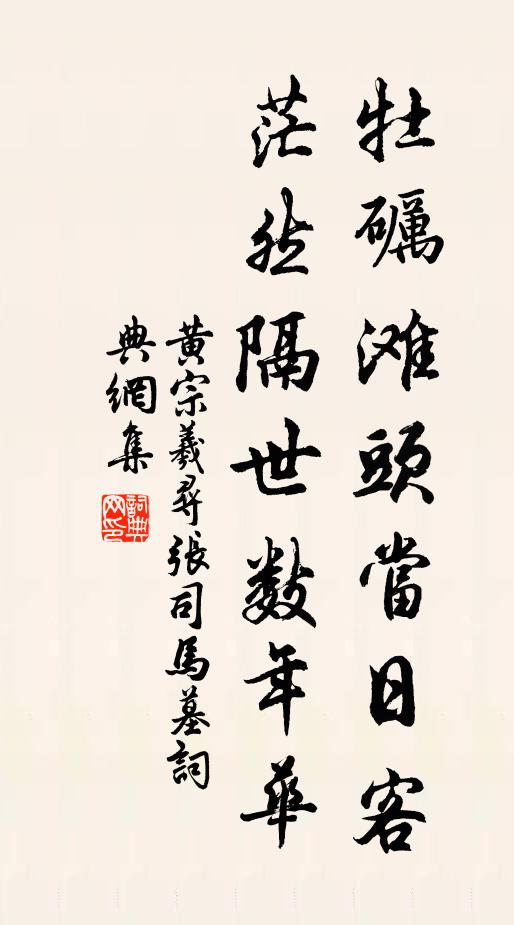 牡礪滩頭當日客
茫然隔世数年華
黄宗羲尋張司馬墓詞
典網集
詞典网印